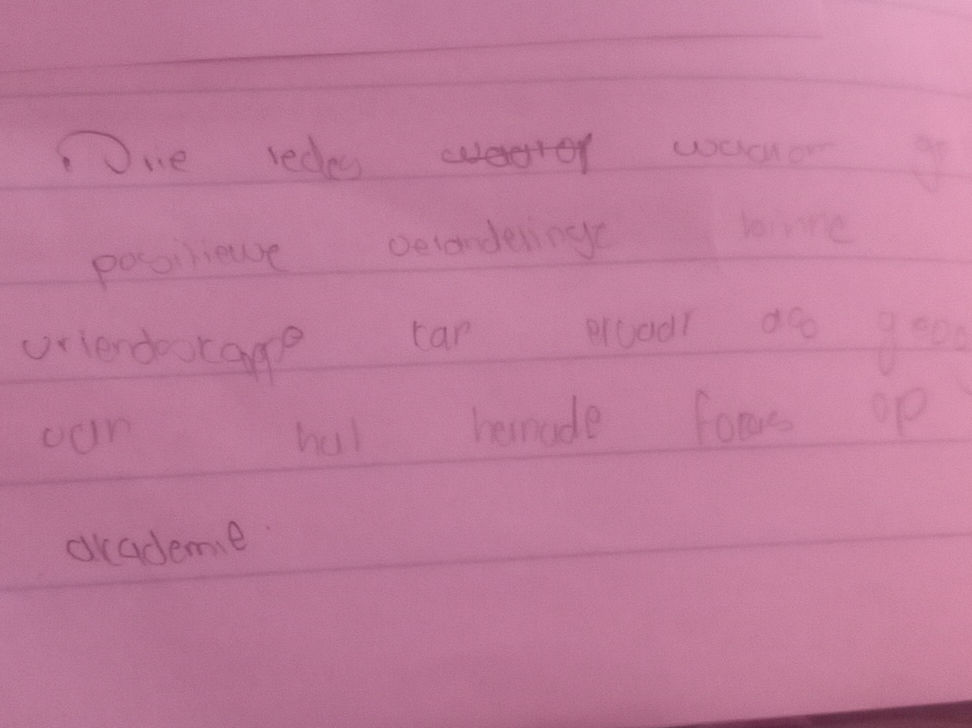 Drie redes waarom
positiewe veranderinge binne
vriendskappe kan ervaar as
van hul hernude fokus op
akademie